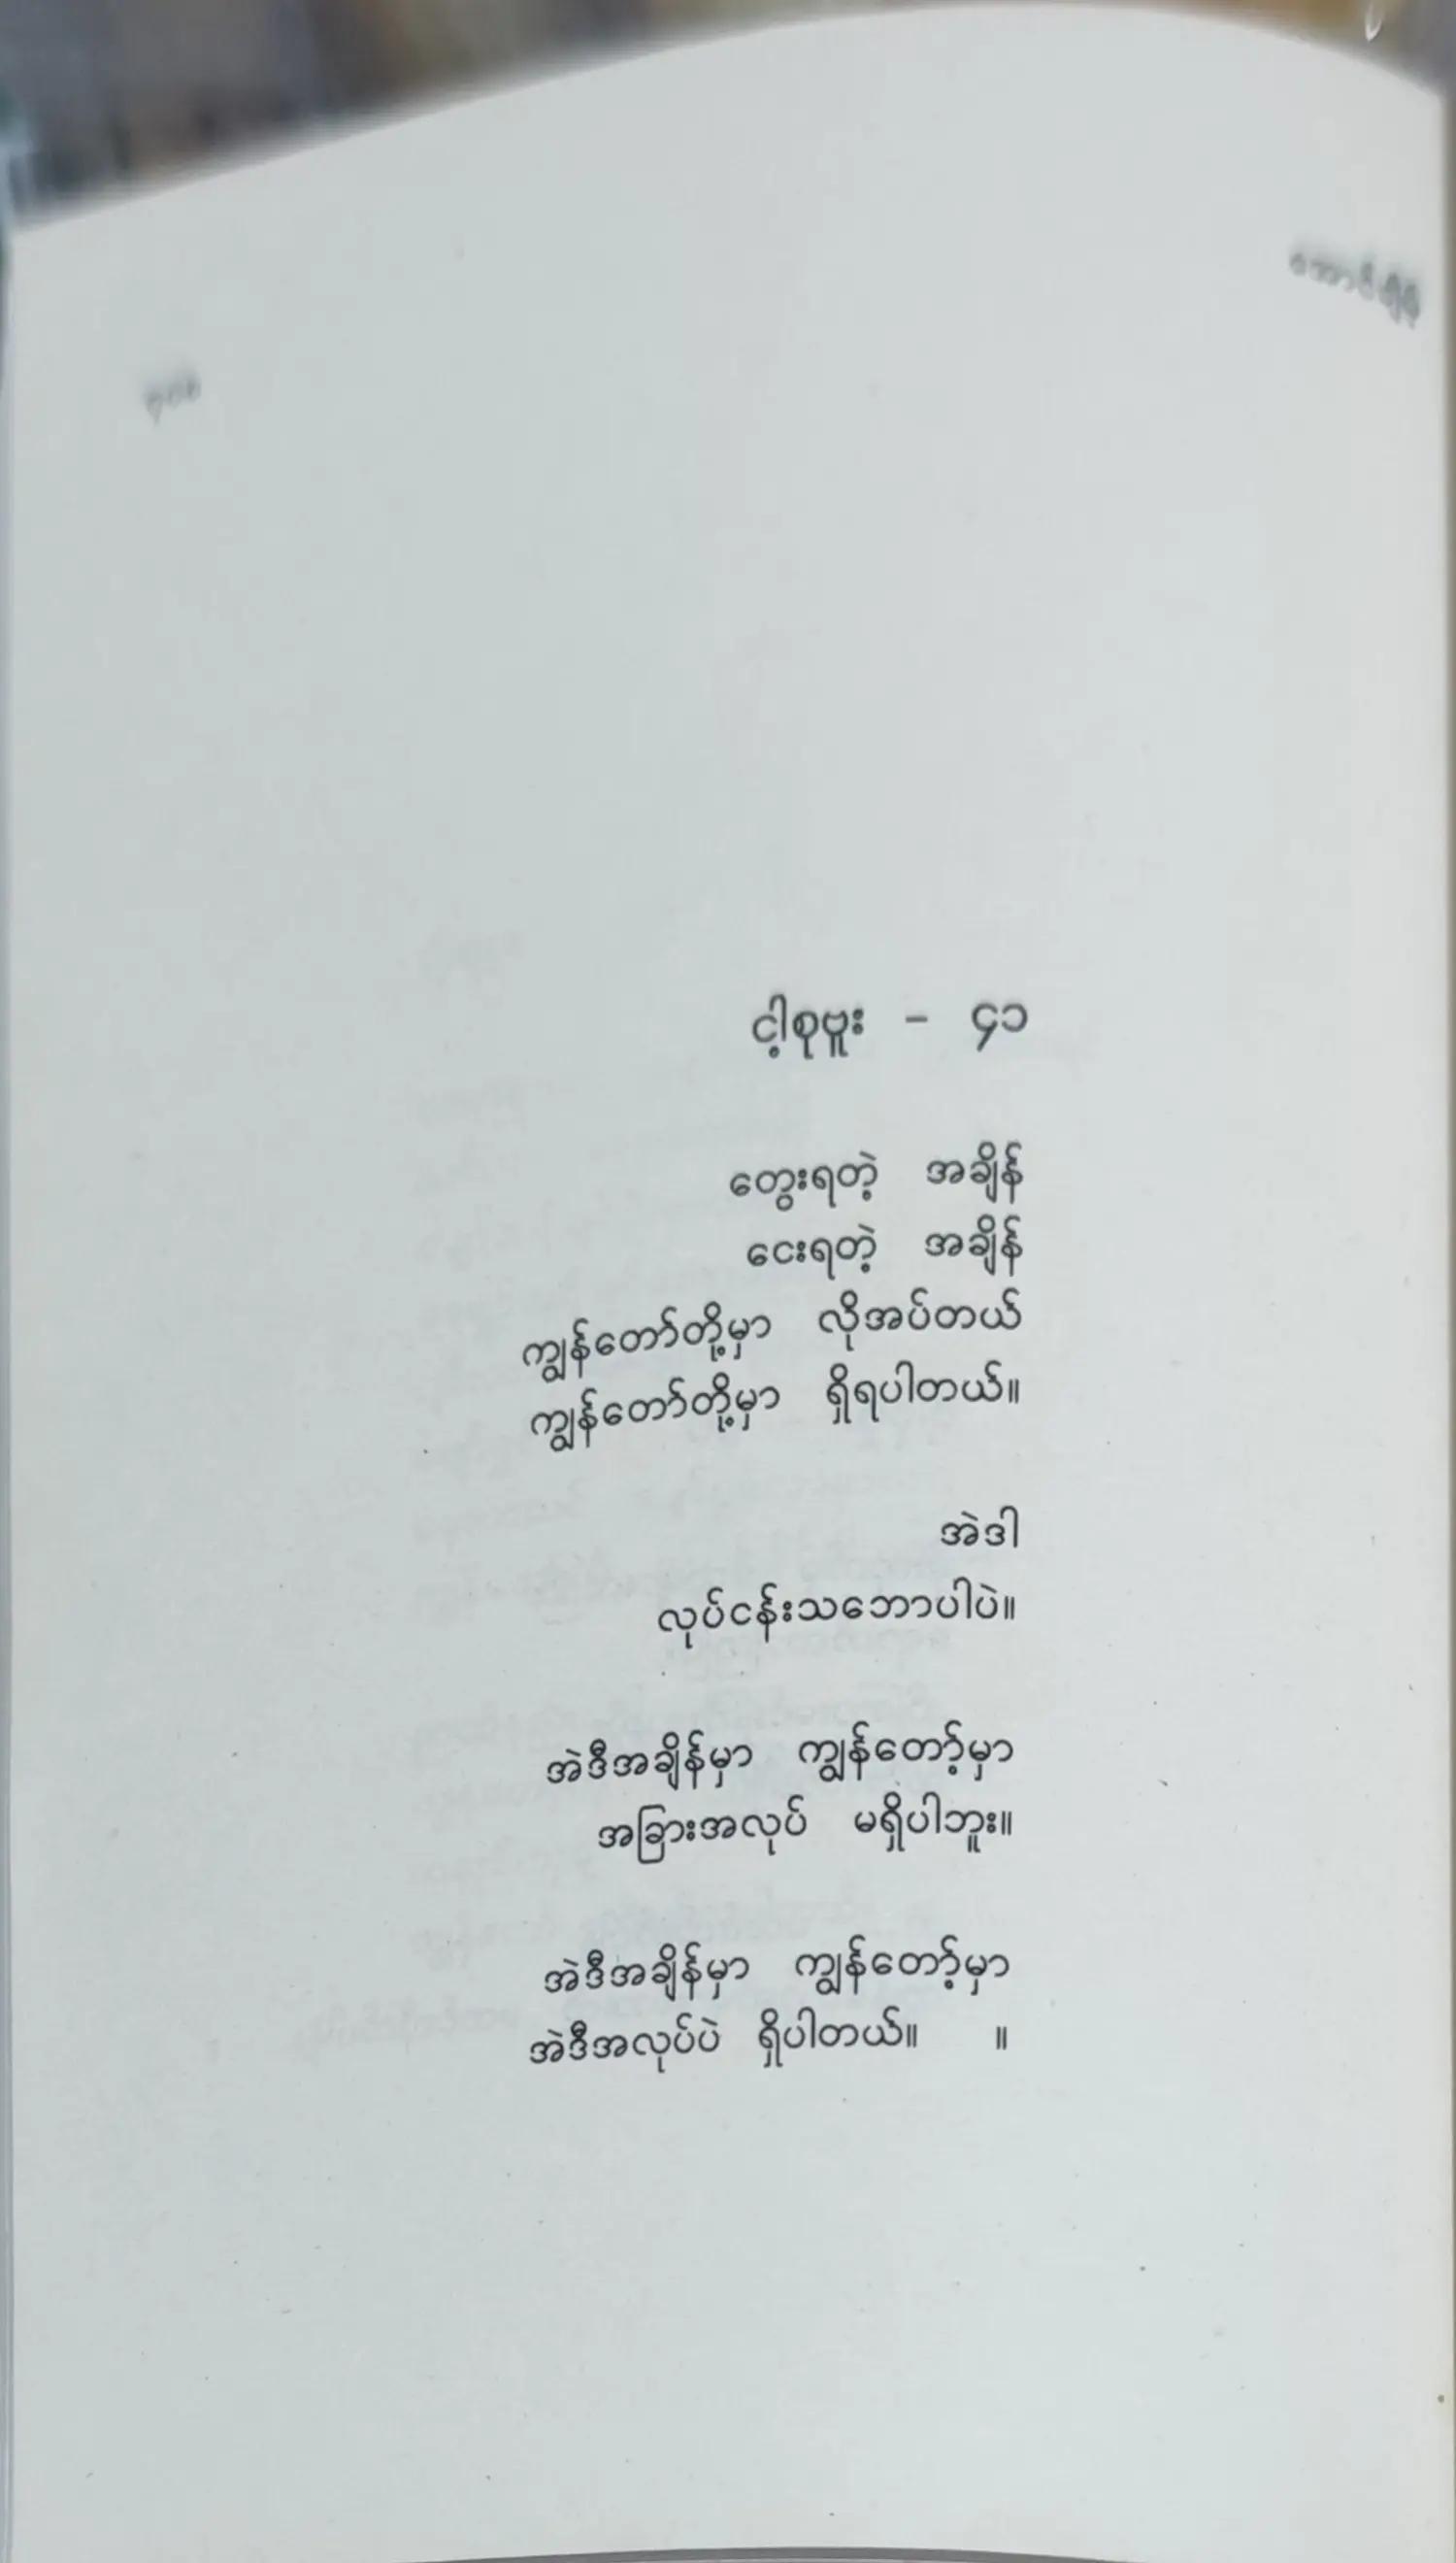 ငါ့စုဗူး - ၄၁
တွေးရတဲ့ အချိန်
ငေးရတဲ့ အချိန်
ကျွန်တော်တို့မှာ လိုအပ်တယ်
ကျွန်တော်တို့မှာ ရှိရပါတယ်။
အဲဒါ
လုပ်ငန်းသဘောပါပဲ။
အဲဒီအချိန်မှာ ကျွန်တော့်မှာ
အခြားအလုပ် မရှိပါဘူး။
အဲဒီအချိန်မှာ ကျွန်တော့်မှာ
အဲဒီအလုပ်ပဲ ရှိပါတယ်။ ။